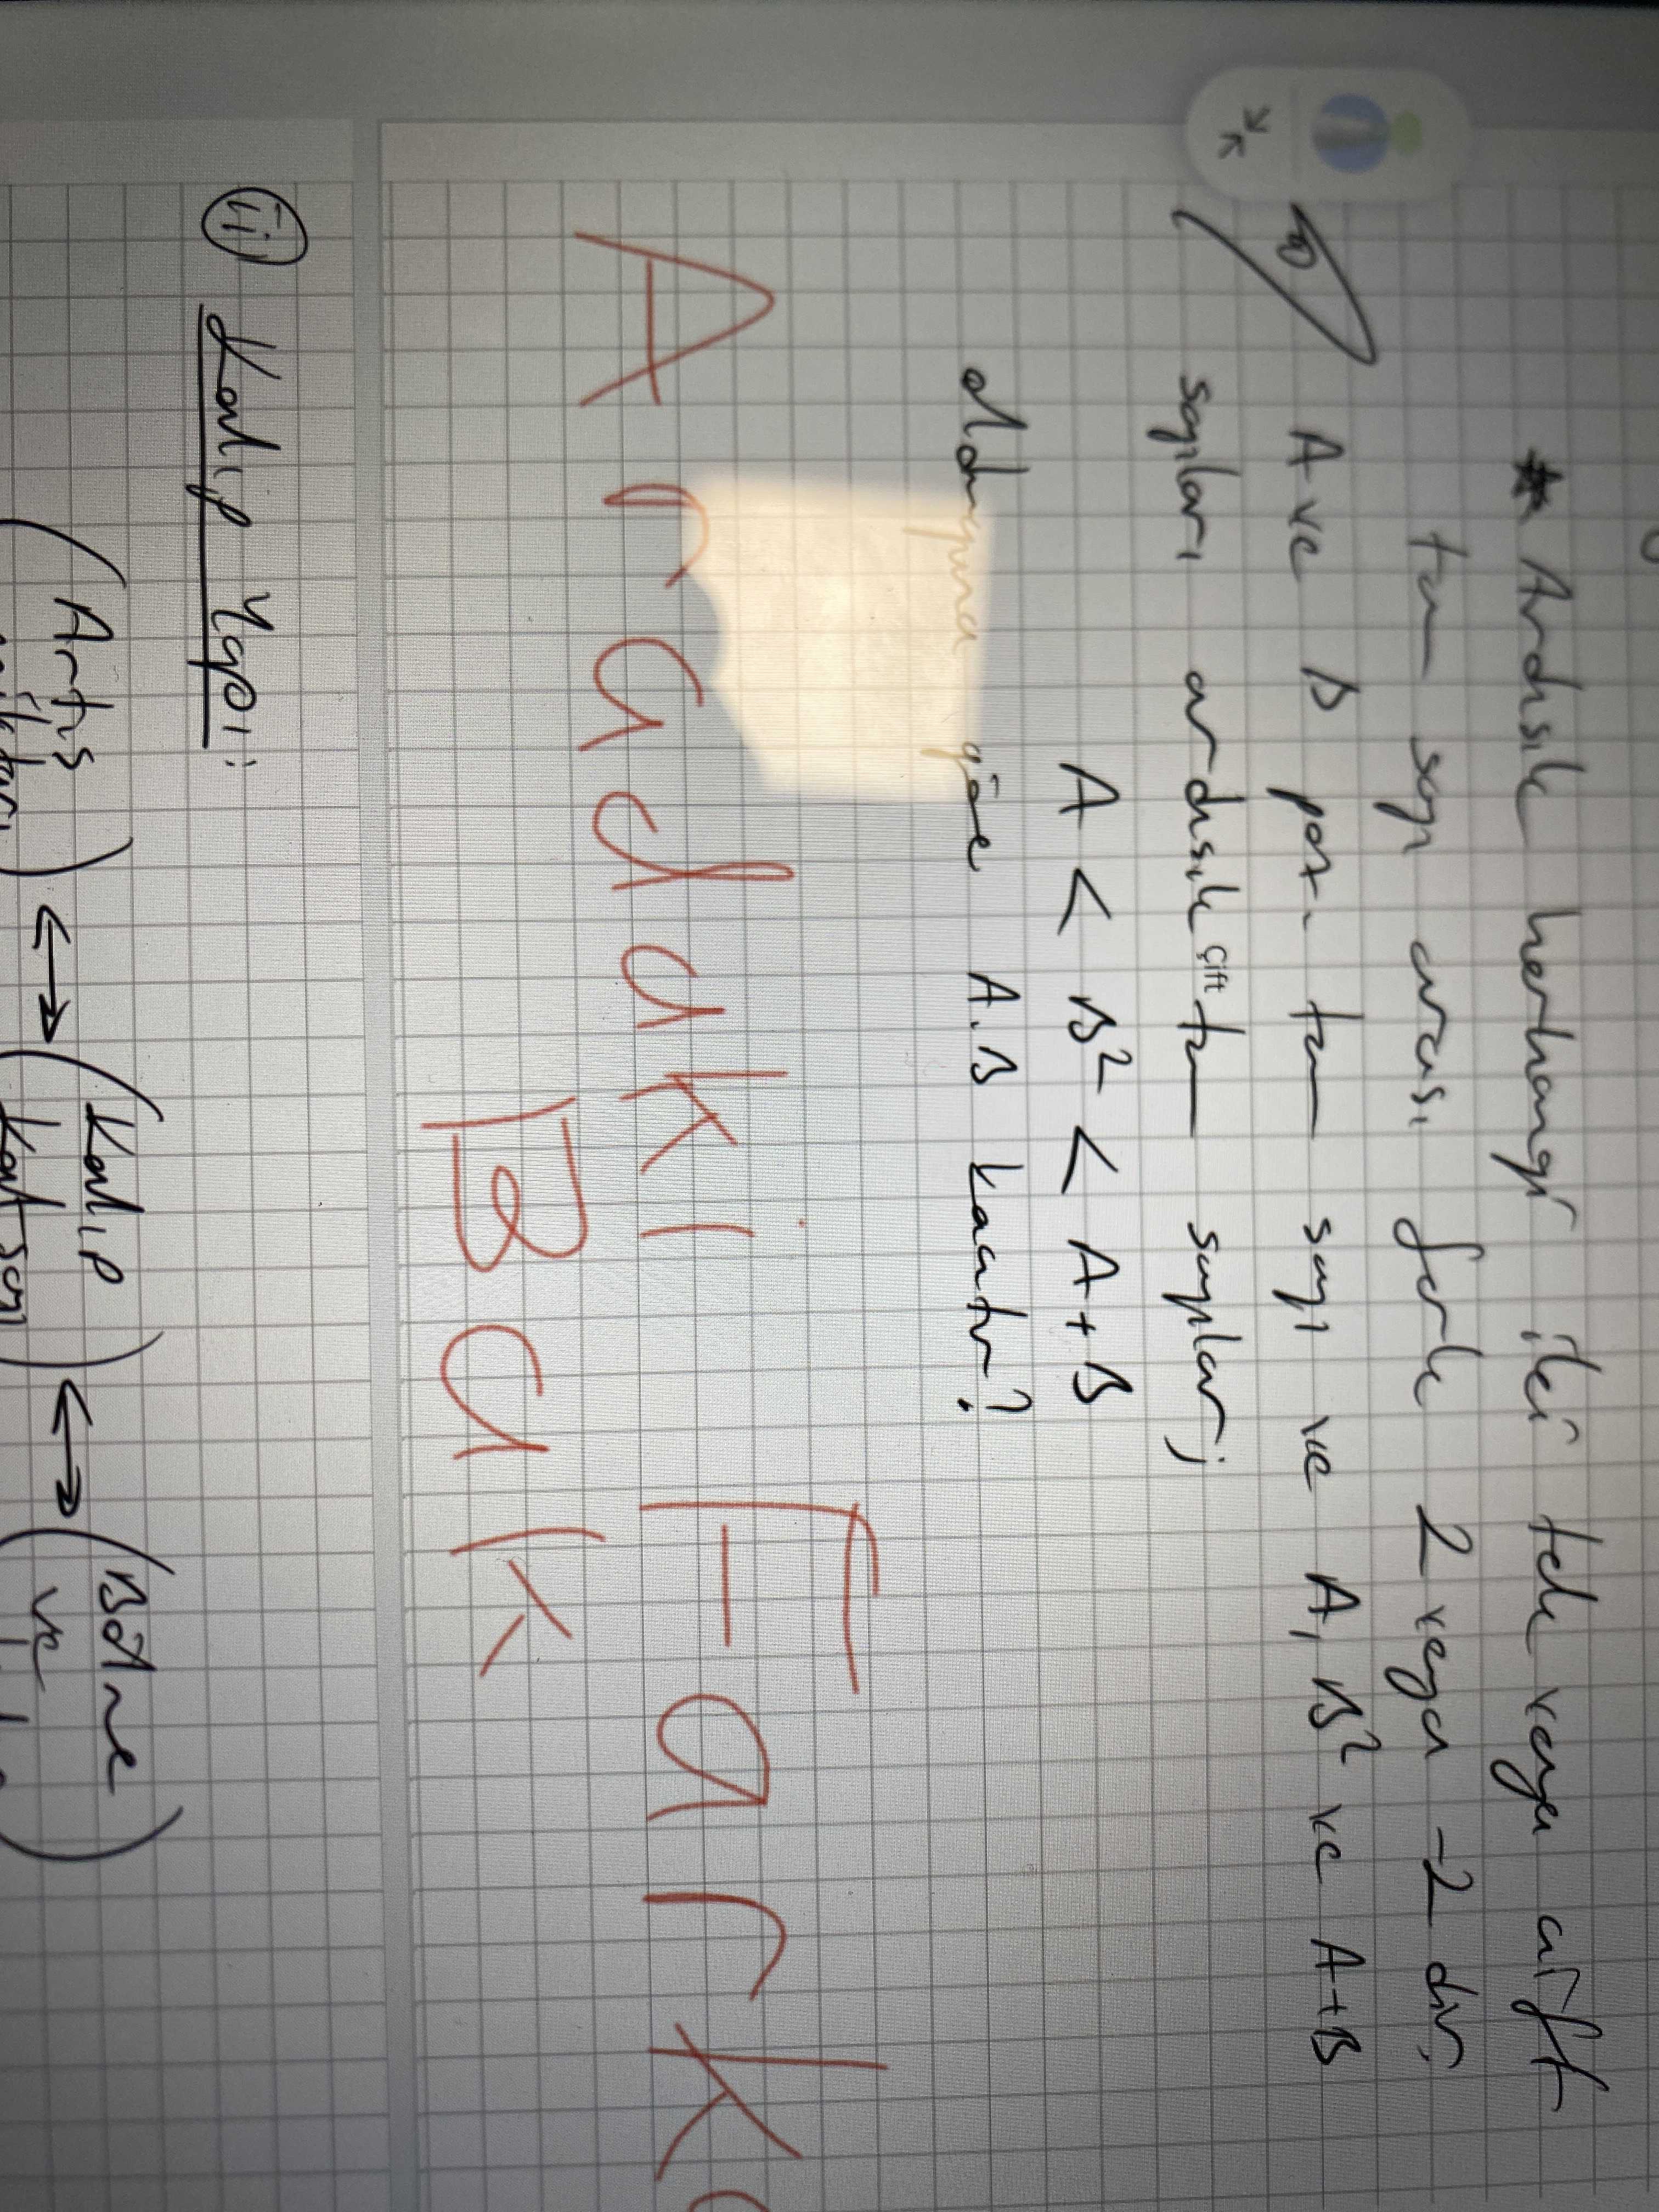 * Ardışık herhangi iki tek veya çift
tam sayı arası fark 2 veya -2 dir.
A ve B poz. tam sayı ve A, B² ve A+B
sayıları ardışık çift tam sayılar;
A < B² < A+B
olduğuna göre A.B kaçtır?
Aradaki Farka
Bak
ii) Kalıp Yapı:
(Artış) ↔ (Kalıp) ↔ (Bölme
ve